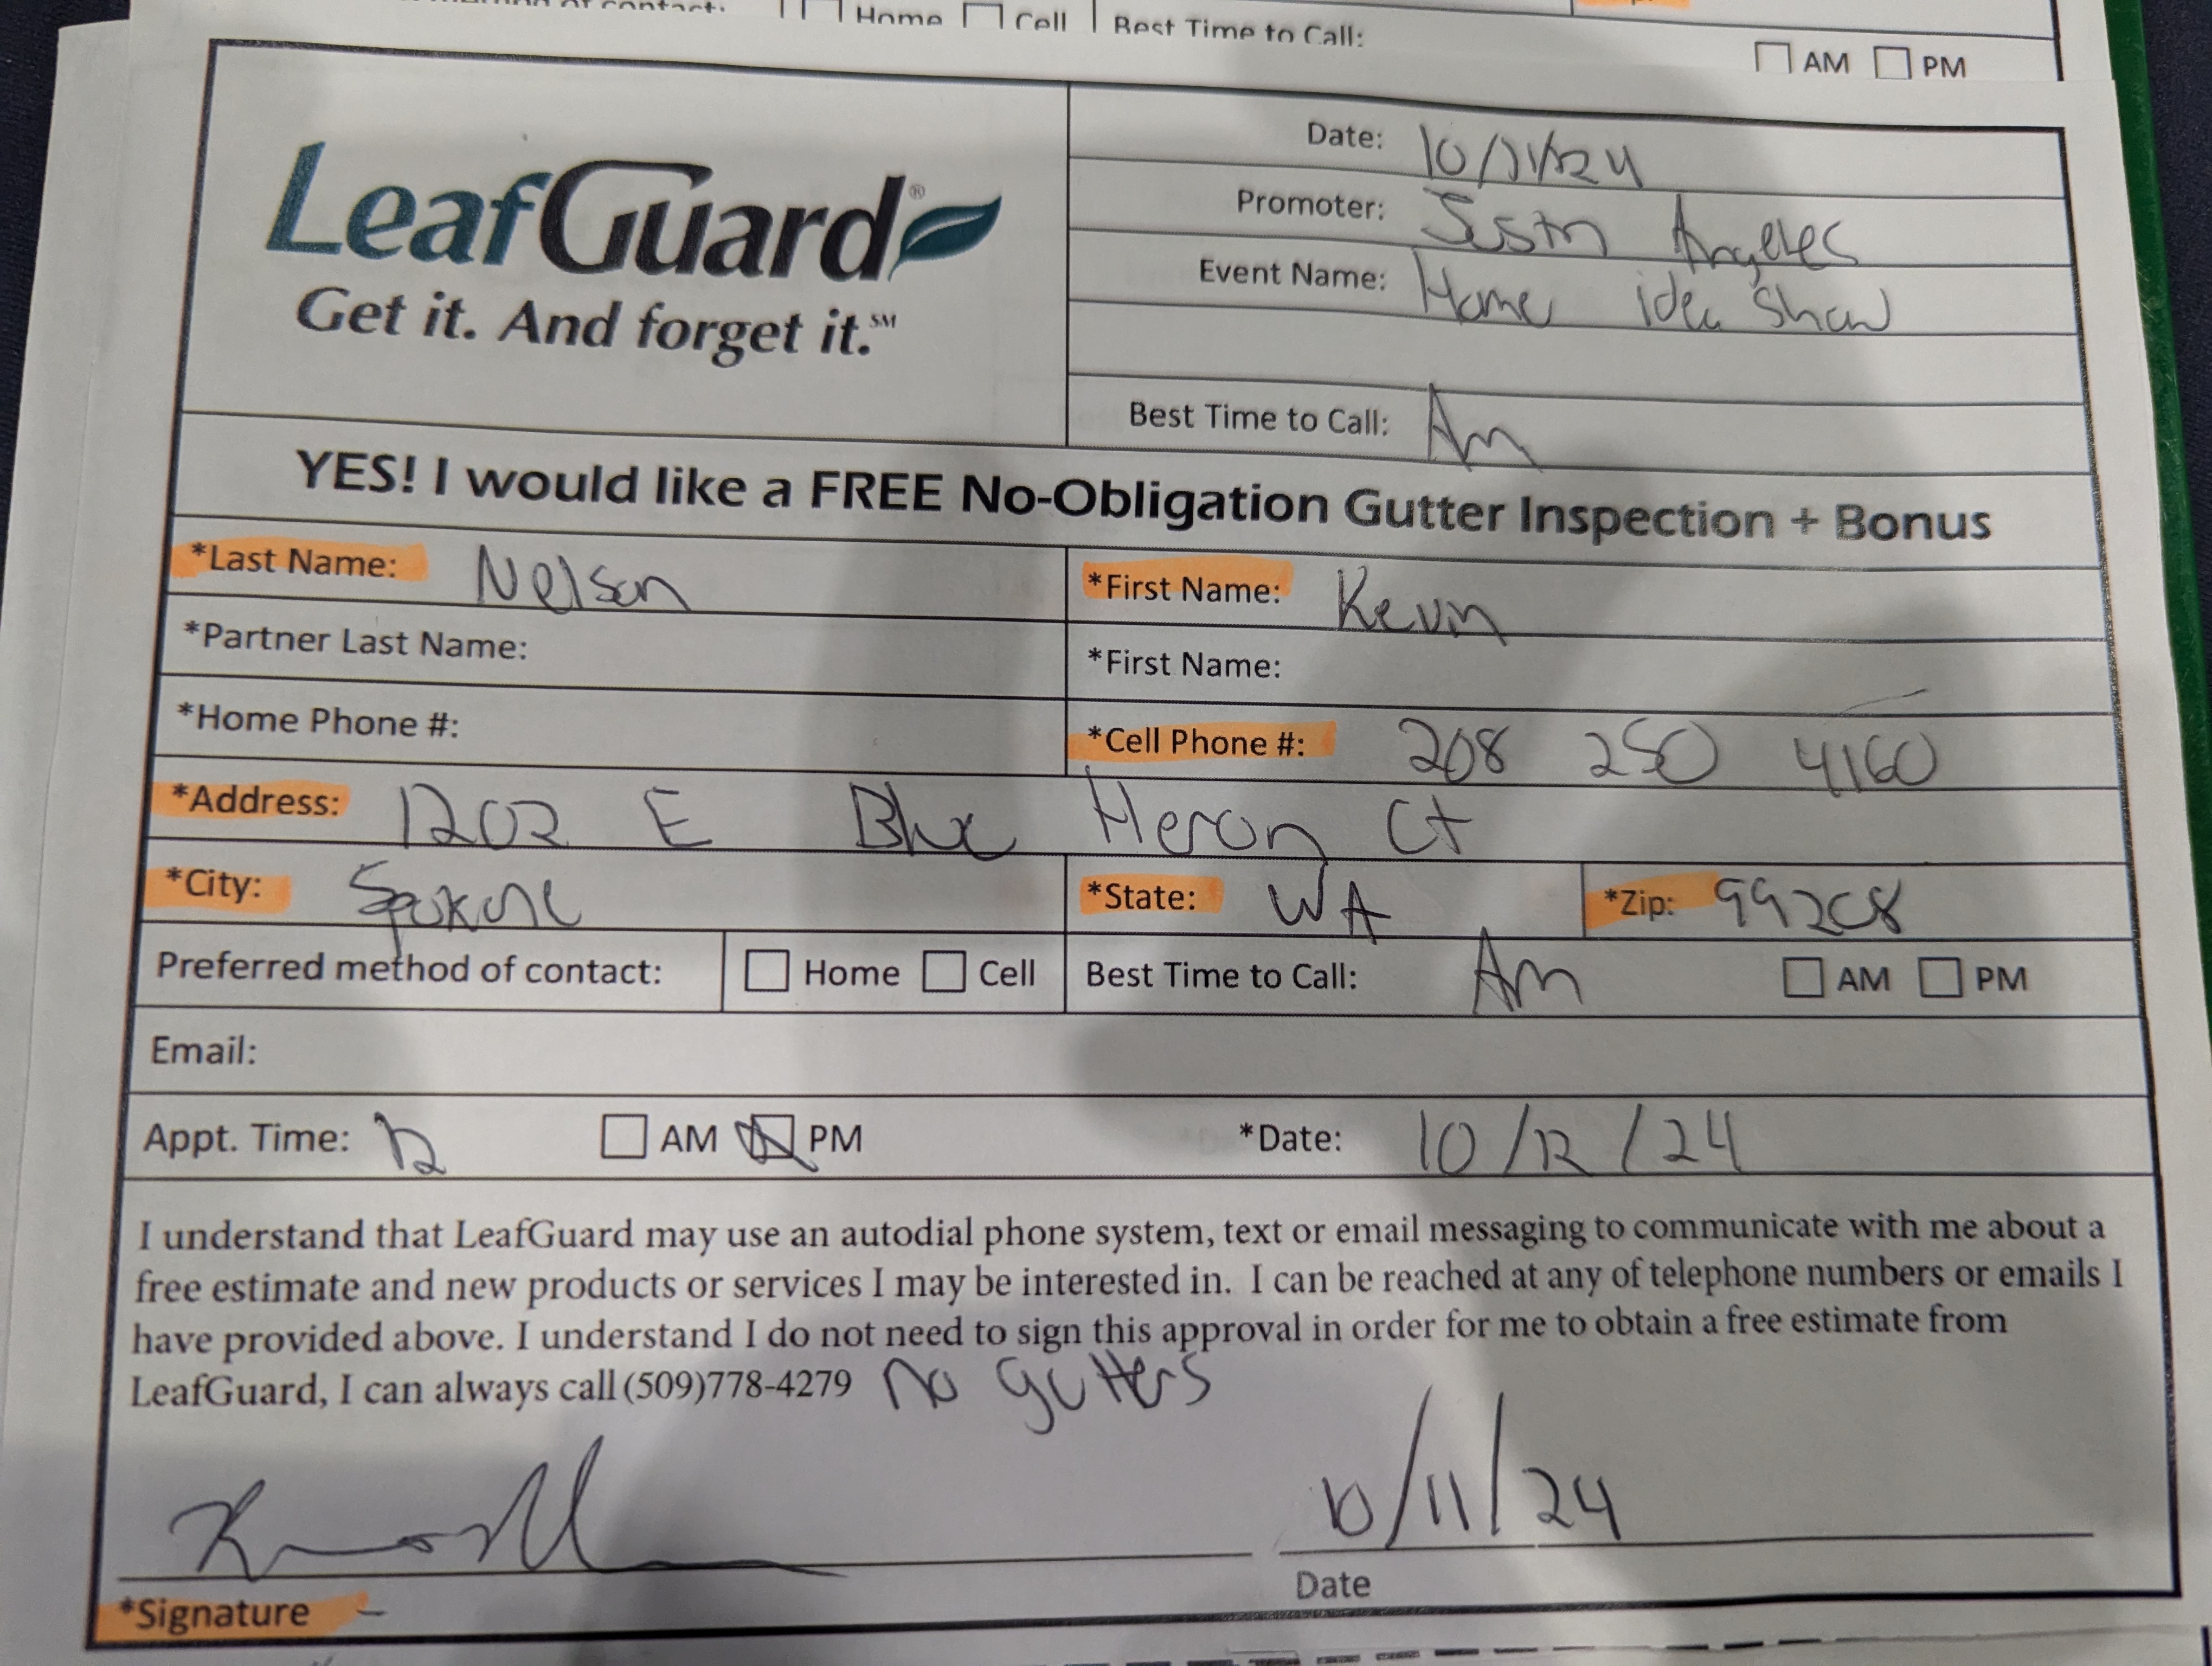 Home Cell Best Time to Call:
AM PM
LeafGuard®
Get it. And forget it.SM
Date: 10/11/24
Promoter: Justin Angeles
Event Name: Home idea Show
Best Time to Call: Am
YES! I would like a FREE No-Obligation Gutter Inspection + Bonus
*Last Name: Nelson *First Name: Kevin
*Partner Last Name: *First Name:
*Home Phone #: *Cell Phone #: 208 250 4160
*Address: 1202 E Blue Heron Ct
*City: Spokane *State: WA *Zip: 99208
Preferred method of contact: Home Cell Best Time to Call: Am AM PM
Email:
Appt. Time: 12 AM PM *Date: 10/12/24
I understand that LeafGuard may use an autodial phone system, text or email messaging to communicate with me about a
free estimate and new products or services I may be interested in. I can be reached at any of telephone numbers or emails I
have provided above. I understand I do not need to sign this approval in order for me to obtain a free estimate from
LeafGuard, I can always call (509)778-4279 no gutters
10/11/24
*Signature Date